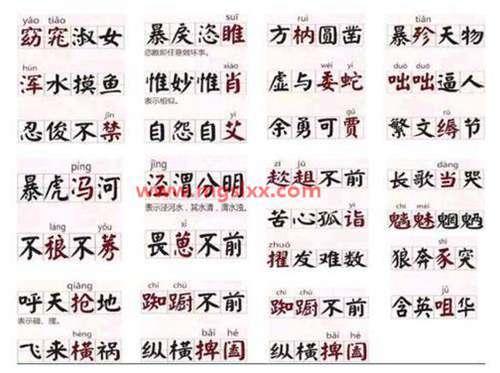 yǎo tiǎo
窈窕淑女
hún
浑水摸鱼
jīn
忍俊不禁
píng
暴虎冯河
yǒu
不稂不莠
qiāng
呼天抢地
表示碰、撞。
hèng
飞来横祸
suī
暴戾恣睢
惟妙惟肖
表示相似。
yì
自怨自艾
jīng
泾渭分明
表示泾河水,其水清,渭水浊。
xǐ
畏葸不前
chí chú
踟蹰不前
bǎi hé
纵横捭阖
ruì
方枘圆凿
wēi yí
虚与委蛇
gǔ
余勇可贾
zī jū
趑趄不前
yì
苦心孤诣
zhuó
擢发难数
chí chú
踟蹰不前
bǎi hé
纵横捭阖
tiǎn
暴殄天物
duō duō
咄咄逼人
rù
繁文缛节
dàng
长歌当哭
chī mèi
魑魅魍魉
shǐ
狼奔豕突
jǔ
含英咀华